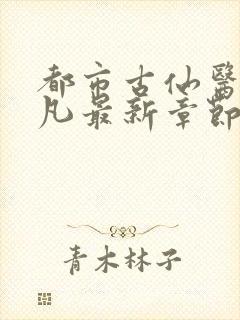 都市古仙醫
凡最新章節
青木林子